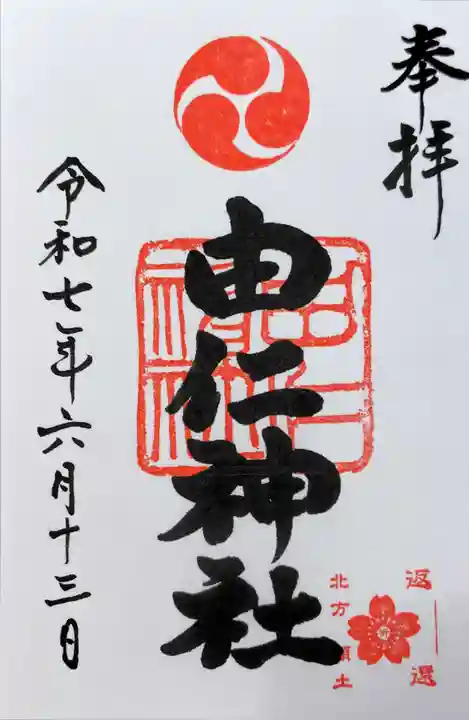 奉拝
由仁神社
令和七年六月十三日
返還
北方領土